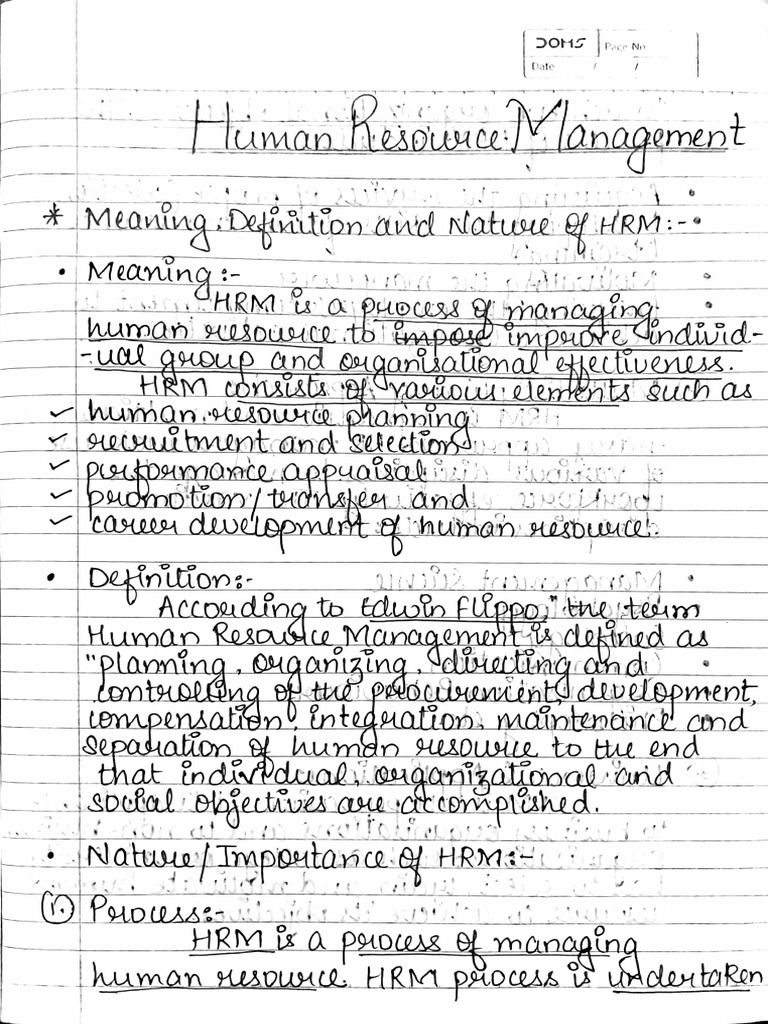 DOMS Page No
Date / /
Human Resource Management
* Meaning, Definition and Nature of HRM:-
• Meaning:-
HRM is a process of managing
human resource to impose improve individ-
-ual group and organisational effectiveness.
HRM consists of various elements such as
✓ human resource planning
✓ recruitment and selection
✓ performance appraisal
✓ promotion/transfer and
✓ career development of human resource.
• Definition:-
According to Edwin Flippo," the term
Human Resource Management is defined as
"planning, organizing, directing and
controlling of the procurement, development,
compensation, integration, maintenance and
separation of human resource to the end
that individual, organizational and
social objectives are accomplished.
• Nature/Importance of HRM:-
1. Process:-
HRM is a process of managing
human resource. HRM process is undertaken